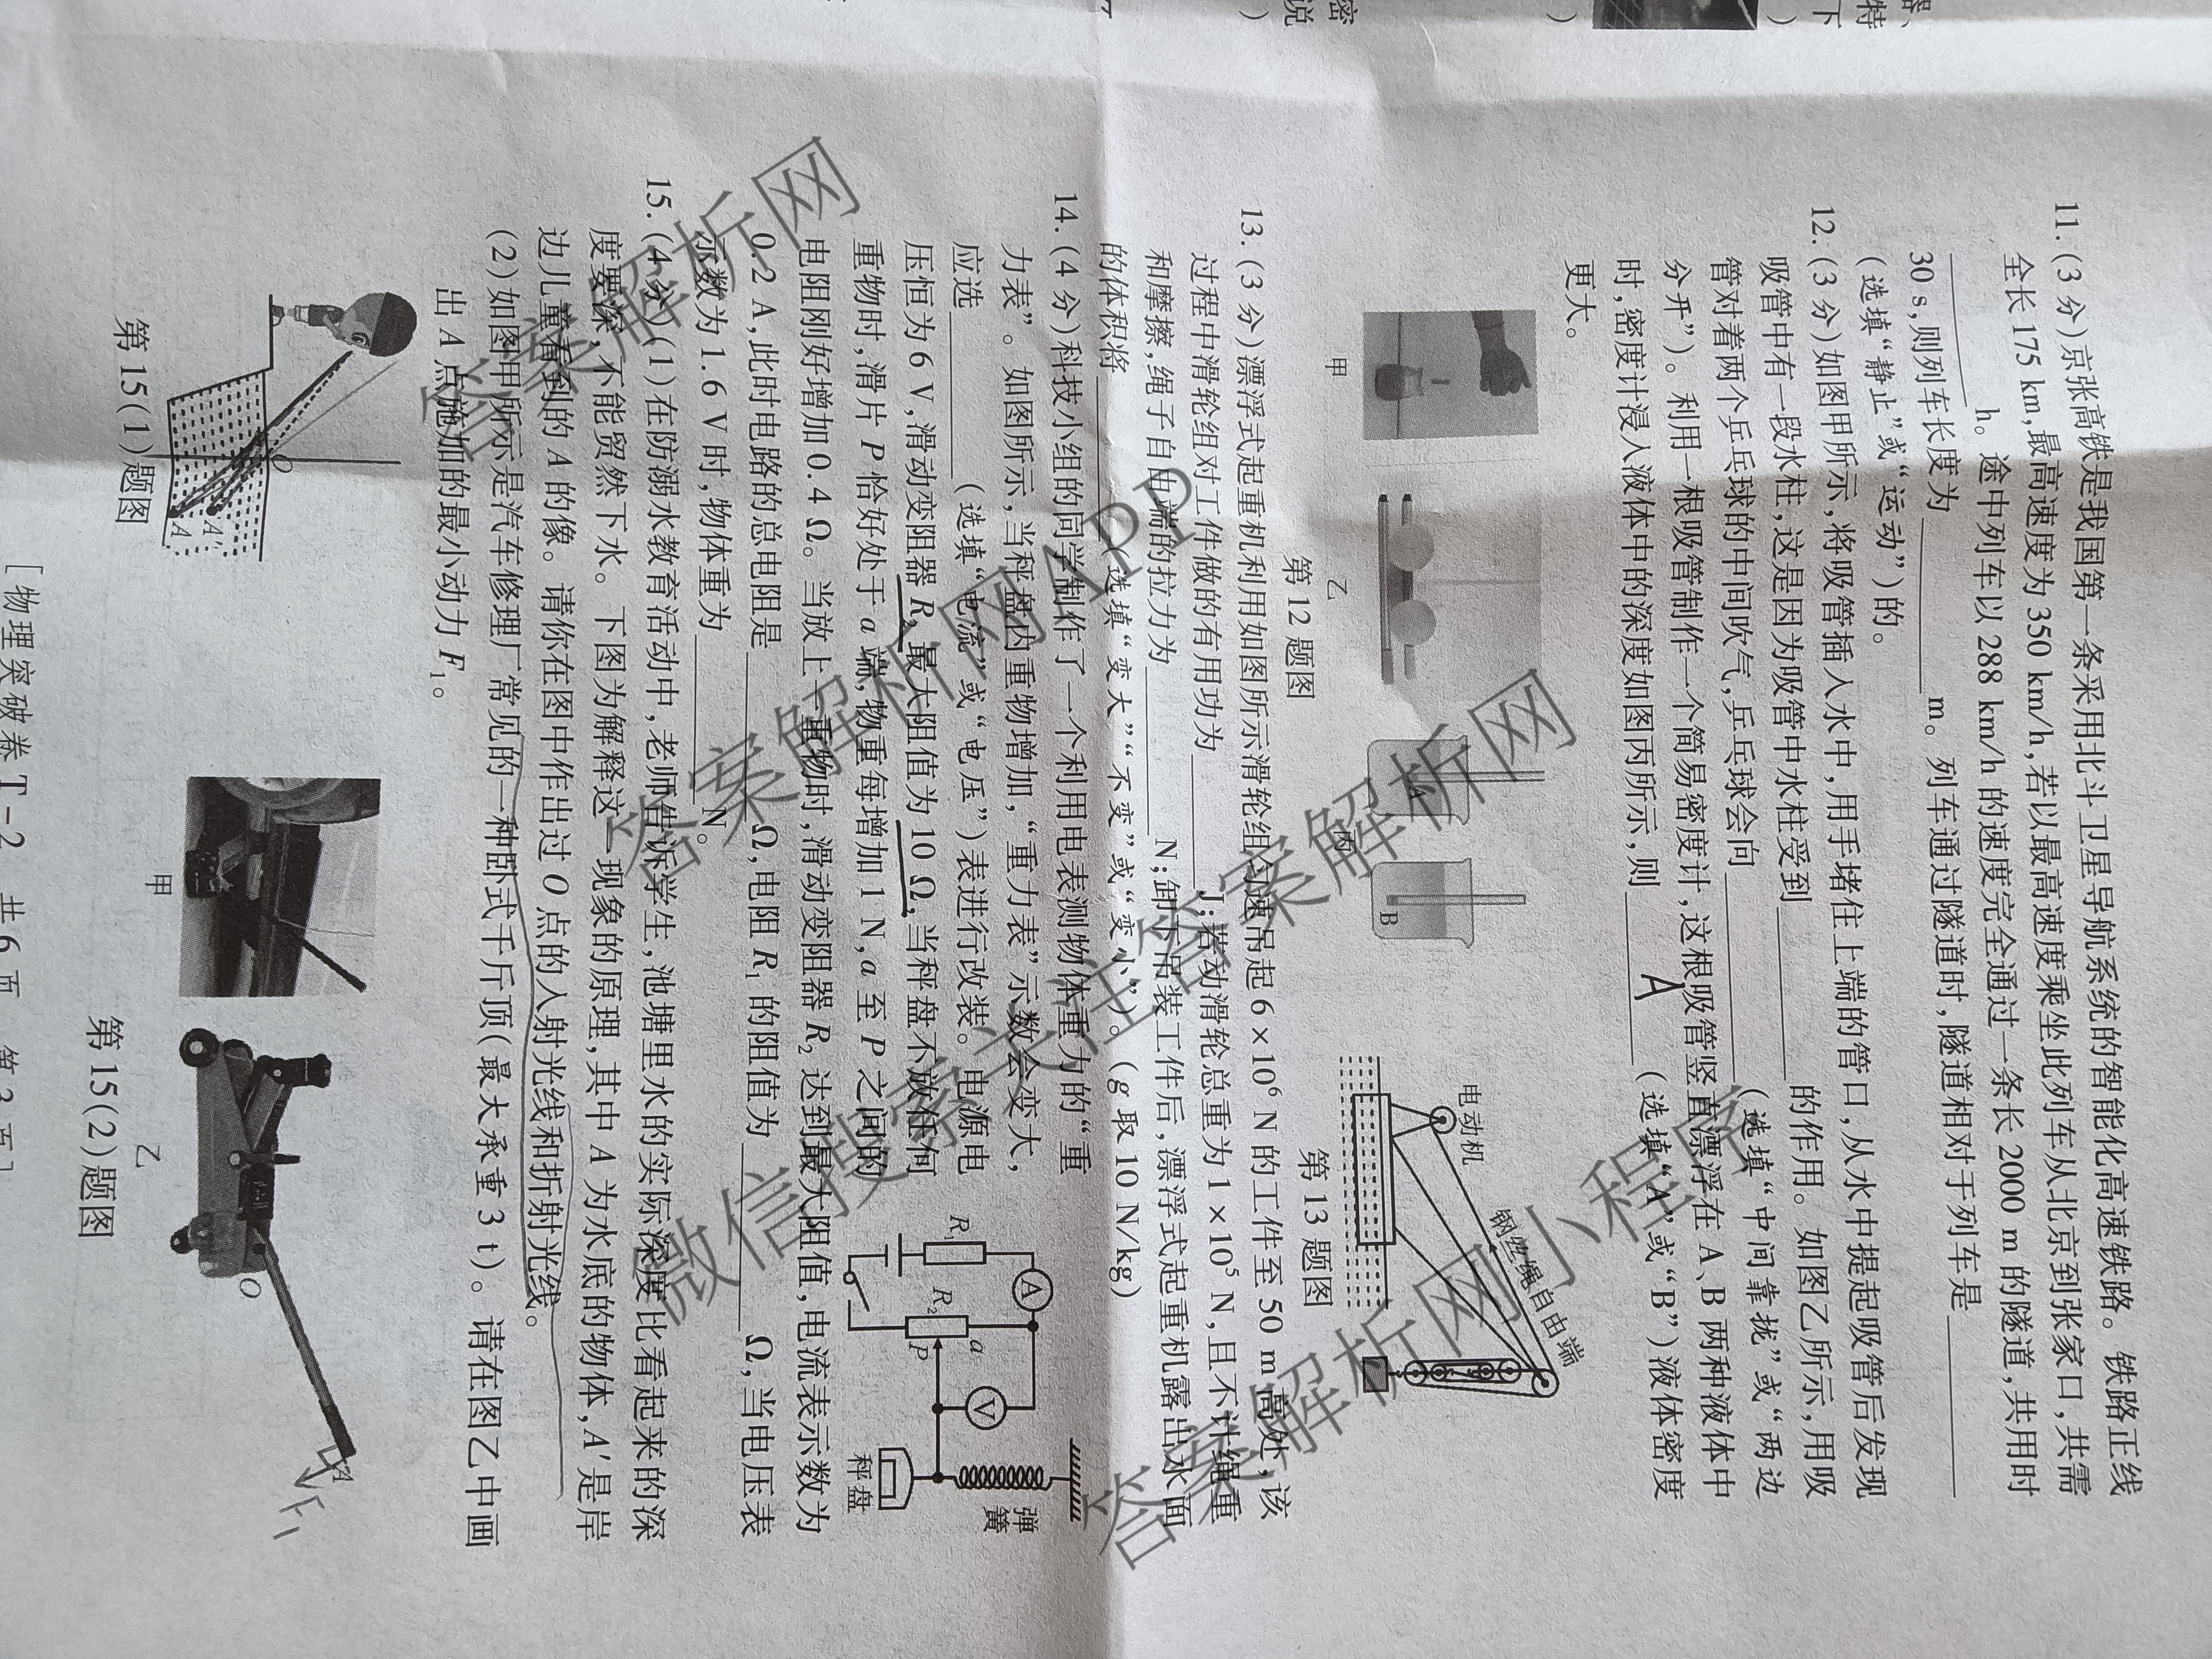 11.(3 分)京张高铁是我国第一条采用北斗卫星导航系统的智能化高速铁路。铁路正线
全长 175 km,最高速度为 350 km/h,若以最高速度乘坐此列车从北京到张家口,共需
________h。途中列车以 288 km/h 的速度完全通过一条长 2000 m 的隧道,共用时
30 s,则列车长度为________m。列车通过隧道时,隧道相对于列车是________
(选填“静止”或“运动”)的。
12.(3 分)如图甲所示,将吸管插入水中,用手堵住上端的管口,从水中提起吸管后发现
吸管中有一段水柱,这是因为吸管中水柱受到________的作用。如图乙所示,用吸
管对着两个乒乓球的中间吹气,乒乓球会向________(选填“中间靠拢”或“两边
分开”)。利用一根吸管制作一个简易密度计,这根吸管竖直漂浮在 A、B 两种液体中
时,密度计浸入液体中的深度如图丙所示,则____A____(选填“A”或“B”)液体密度
更大。
甲
乙
丙
A
B
第 12 题图
电动机
钢丝绳自由端
第 13 题图
13.(3 分)漂浮式起重机利用如图所示滑轮组匀速吊起 6×10⁶ N 的工件至 50 m 高处,该
过程中滑轮组对工件做的有用功为________J;若动滑轮总重为 1×10⁵ N,且不计绳重
和摩擦,绳子自由端的拉力为________N;卸下吊装工件后,漂浮式起重机露出水面
的体积将________(选填“变大”“不变”或“变小”)。(g 取 10 N/kg)
14.(4 分)科技小组的同学制作了一个利用电表测物体重力的“重
力表”。如图所示,当秤盘内重物增加,“重力表”示数会变大,
应选________(选填“电流”或“电压”)表进行改装。电源电
压恒为 6 V,滑动变阻器 R₂ 最大阻值为 10 Ω,当秤盘不放任何
重物时,滑片 P 恰好处于 a 端,物重每增加 1 N,a 至 P 之间的
电阻刚好增加 0.4 Ω。当放上一重物时,滑动变阻器 R₂ 达到最大阻值,电流表示数为
0.2 A,此时电路的总电阻是________Ω,电阻 R₁ 的阻值为________Ω,当电压表
示数为 1.6 V 时,物体重为________N。
R₁
A
R₂
a
P
V
弹簧
秤盘
15.(4 分)(1)在防溺水教育活动中,老师告诉学生,池塘里水的实际深度比看起来的深
度要深,不能贸然下水。下图为解释这一现象的原理,其中 A 为水底的物体,A′是岸
边儿童看到的 A 的像。请你在图中作出过 O 点的入射光线和折射光线。
(2)如图甲所示是汽车修理厂常见的一种卧式千斤顶(最大承重 3 t)。请在图乙中画
出 A 点施加的最小动力 F₁。
O
A′
A
第 15(1)题图
甲
乙
O
A
F₁
第 15(2)题图
[物理突破卷 T-2 共 6 页 第 3 页]
答案解析网
答案解析网APP
答案解析网
微信搜索关注答案解析网
答案解析网小程序